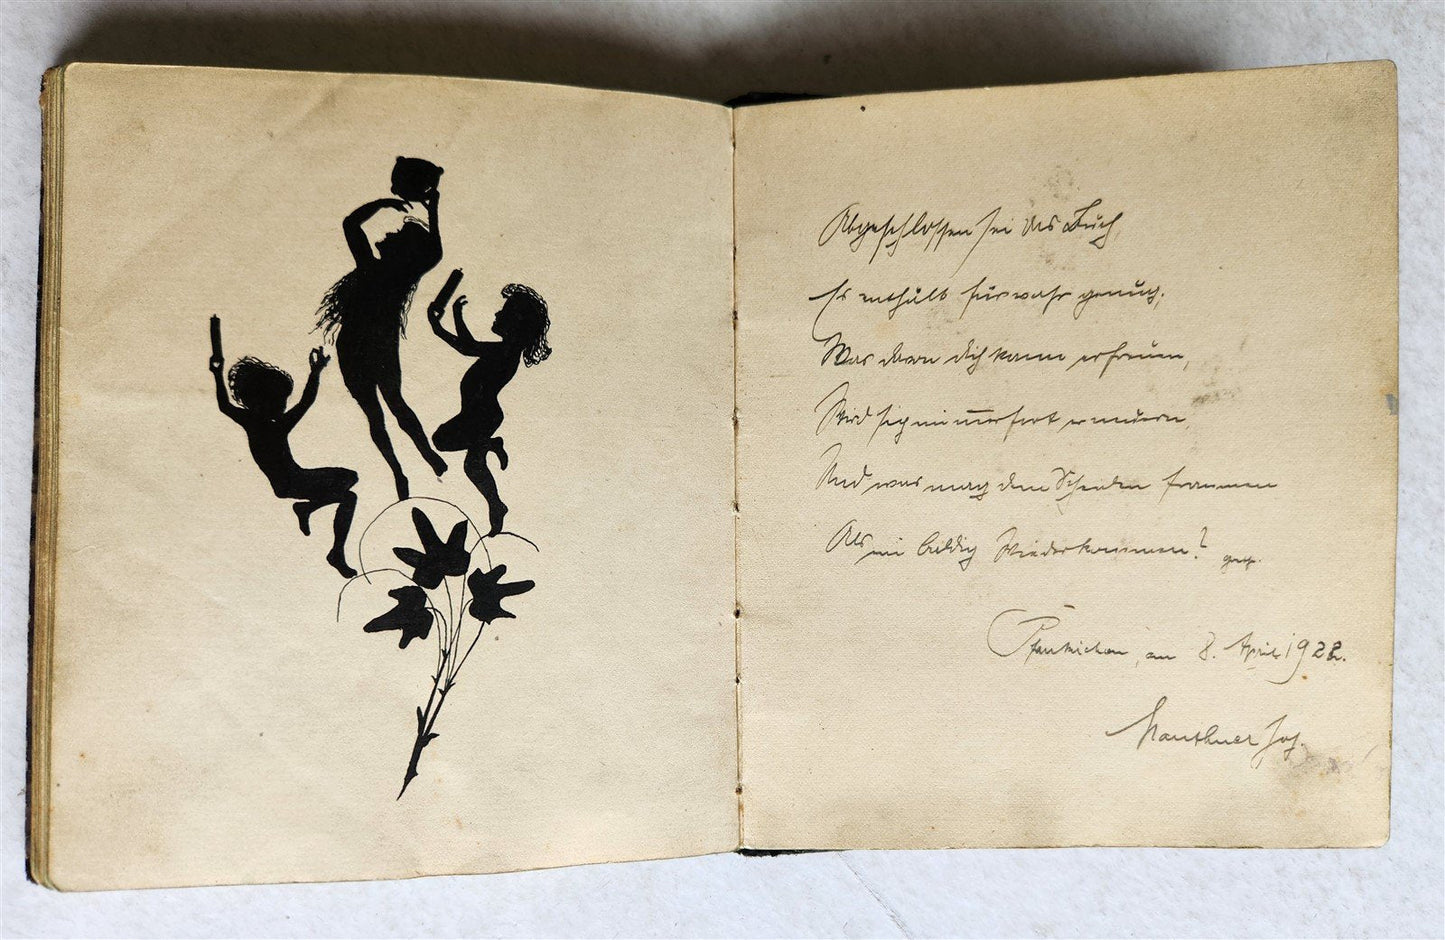 Abgeschlossen sei das Buch,
Es enthält fürwahr genug.
Was darin dich kann erfreuen,
Wird sich immerfort erneuern,
Und was mag dem Scheiden frommen
Als ein baldig Wiederkommen?
am 8. April 1922.
Mauthner Jos.